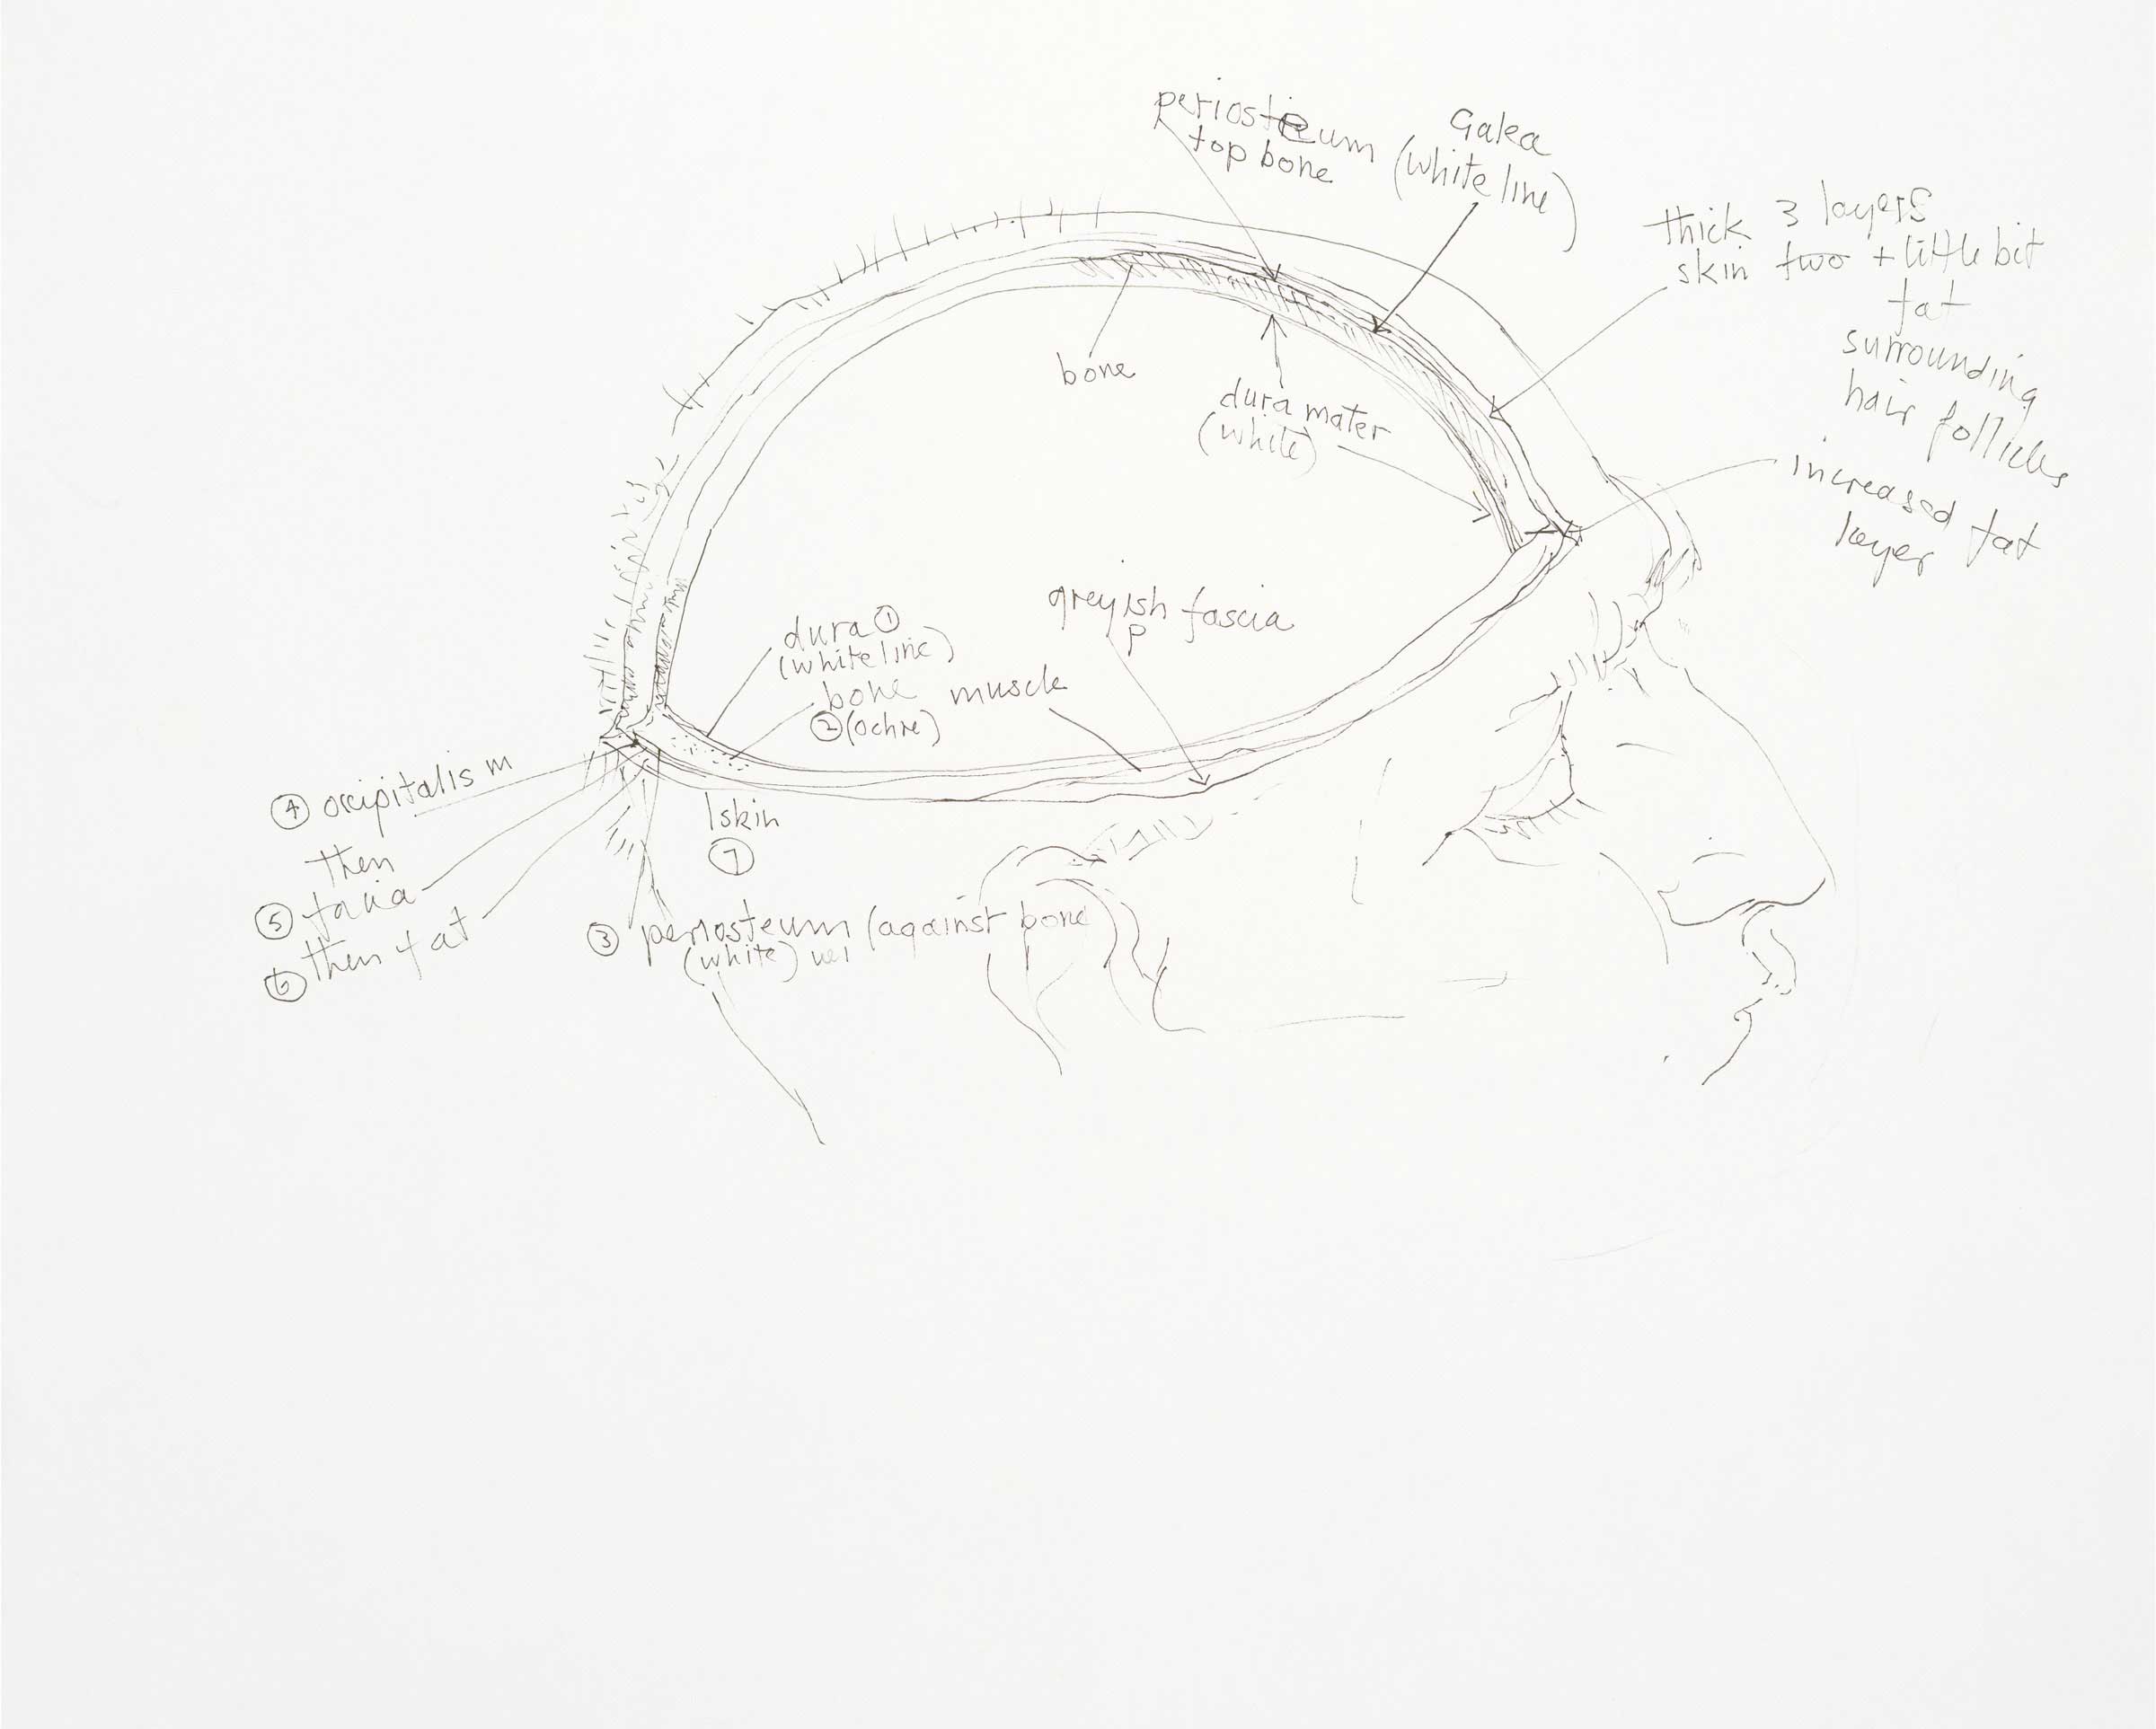 periosteum
top bone
Galea
(white line)
thick 3 layers
skin two + little bit
fat
surrounding
hair follicles
increased fat
layer
bone
dura mater
(white)
greyish fascia
p
dura ①
(white line)
bone
② (ochre)
muscle
④ occipitalis m
then
⑤
⑥ then fat
skin
⑦
③ periosteum (against bone
(white)